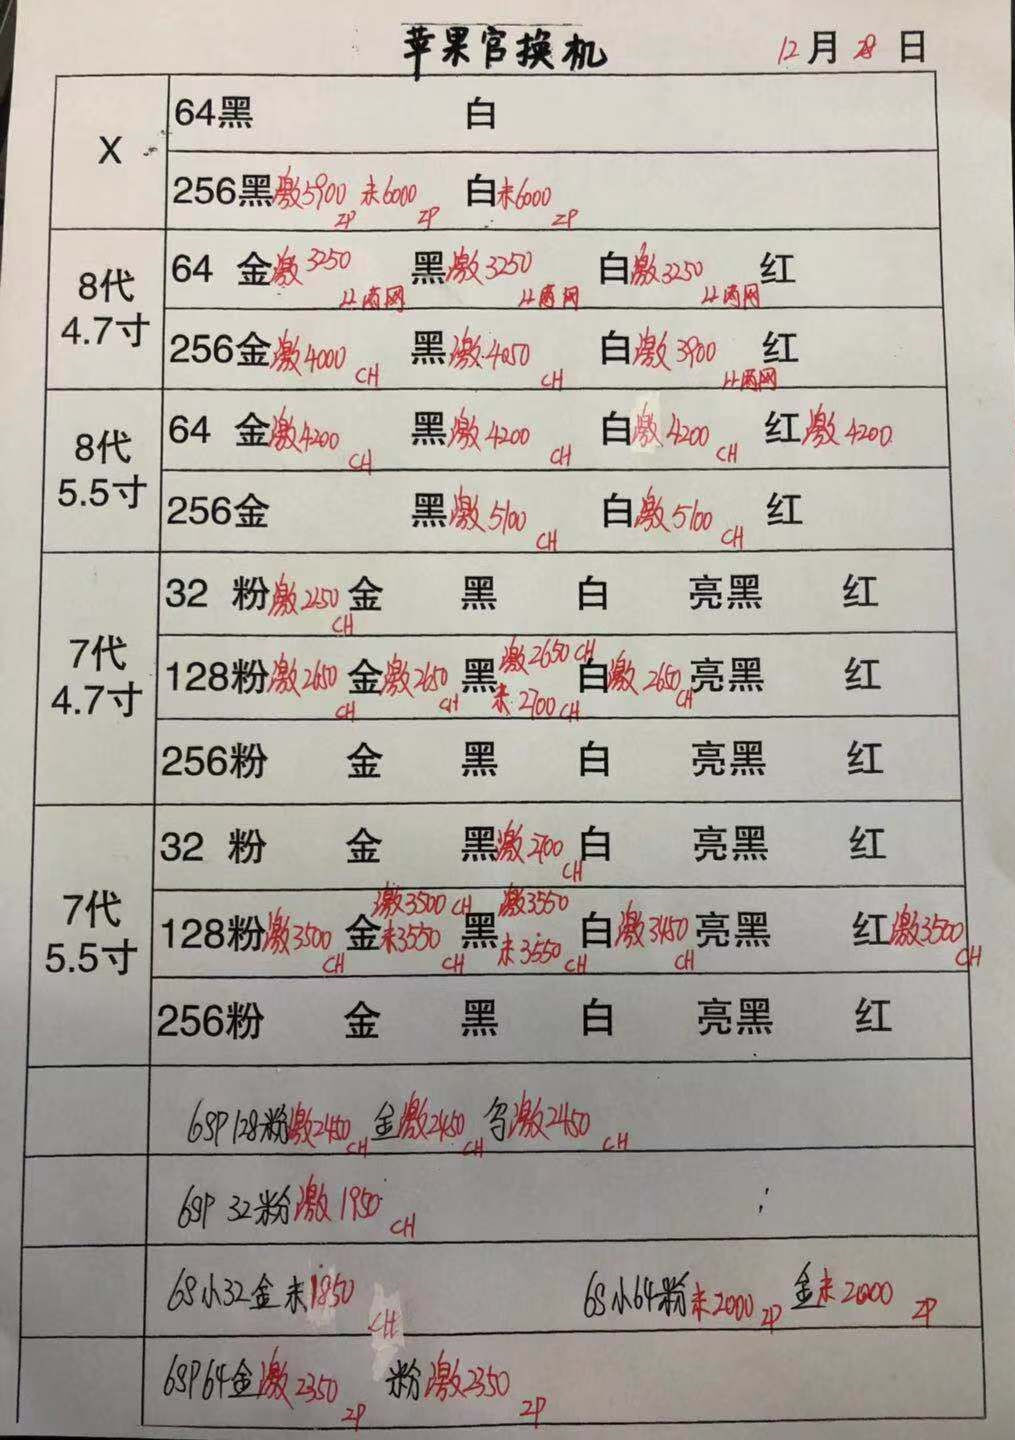 苹果官换机 12月28日
X
64黑 白
256黑激5900 ZP 未6000 ZP 白未6000 ZP
8代
4.7寸
64 金激3250 LL两网 黑激3250 LL两网 白激3250 LL两网 红
256金激4000 CH 黑激4050 CH 白激3900 LL两网 红
8代
5.5寸
64 金激4200 CH 黑激4200 CH 白激4200 CH 红激4200
256金 黑激5100 CH 白激5100 CH 红
7代
4.7寸
32 粉激2250 CH 金 黑 白 亮黑 红
128粉激2650 CH 金激2650 CH 黑激2650 CH 未2700 CH 白激2650 CH 亮黑 红
256粉 金 黑 白 亮黑 红
7代
5.5寸
32 粉 金 黑激2700 CH 白 亮黑 红
128粉激3500 CH 金激3500 CH 未3550 CH 黑激3550 未3550 CH 白激3450 CH 亮黑 红激3500 CH
256粉 金 黑 白 亮黑 红
6SP128粉激2450 CH 金激2450 CH 激2450 CH
6SP 32粉激1950 CH
6S小32金未1850 CH 6S小64粉未2000 ZP 金未2000 ZP
6SP64金激2350 ZP 粉激2350 ZP